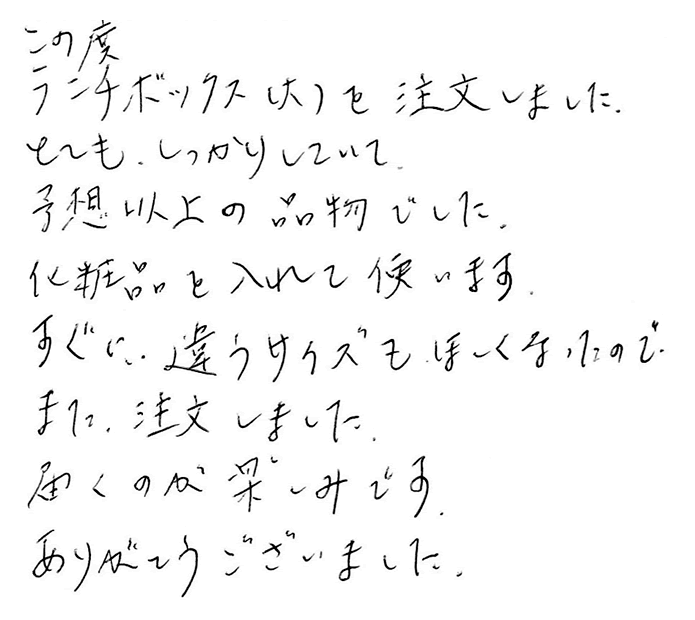 この度
ランチボックス(大)を注文しました.
とても、しっかりしていて、
予想以上の品物でした.
化粧品を入れて使います.
すぐに、違うサイズもほしくなったので.
また、注文しました.
届くのが楽しみです.
ありがとうございました.